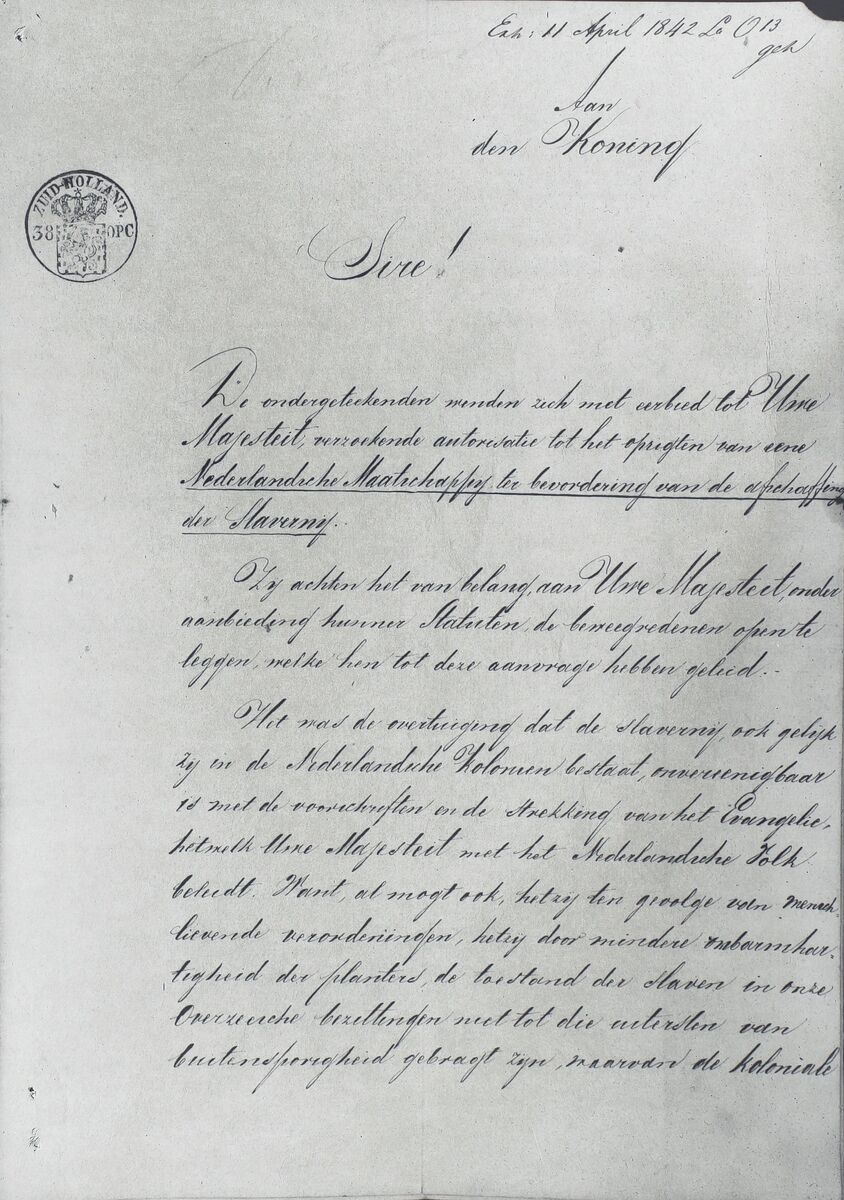 Exh: 11 April 1842 La O 13
geh
Aan
den Koning
ZUID-HOLLAND.
38 OPC
Sire!
De ondergeteekenden wenden zich met eerbied tot Uwe
Majesteit, verzoekende autorisatie tot het oprigten van eene
Nederlandsche Maatschappy, ter bevordering van de afschaffing
der Slavernij.
Zy achten het van belang, aan Uwe Majesteit, onder
aanbieding hunner Statuten, de beweegredenen open te
leggen, welke hen tot deze aanvrage hebben geleid.
Het was de overtuiging dat de slavernij, ook gelijk
zy in de Nederlandsche Kolonien bestaat, onvereenigbaar
is met de voorschriften en de strekking van het Evangelie,
hetwelk Uwe Majesteit met het Nederlandsche Volk
belijdt. Want, al mogt ook, hetzy ten gevolge van mensch-
lievende verordeningen, hetzy door mindere onbarmhar-
tigheid der planters, de toestand der slaven in onze
Overzeesche bezittingen niet tot die uitersten van
buitensporigheid gebragt zyn, waarvan de koloniale